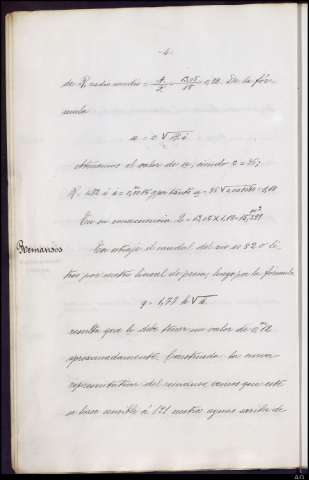 -4-
de R, radio medio = A/P = 13,05/18 = 0,72. De la fór-
mula
u = c √R i
obtenemos el valor de u; siendo c = 35;
R = 0,72 é i = por tanto u = 35 √
En su consecuencia Q = 13,05 X 1,18 =
Remansos
En estiaje el caudal del río es 520 li-
tros por metro lineal de presa; luego por la fórmula
q = 1,77 h √h
resulta que h debe tener un valor de 0,m
aproximadamente. Construida la curva
representativa del remanso vemos que este
se hace sensible á 171 metros aguas arriba de